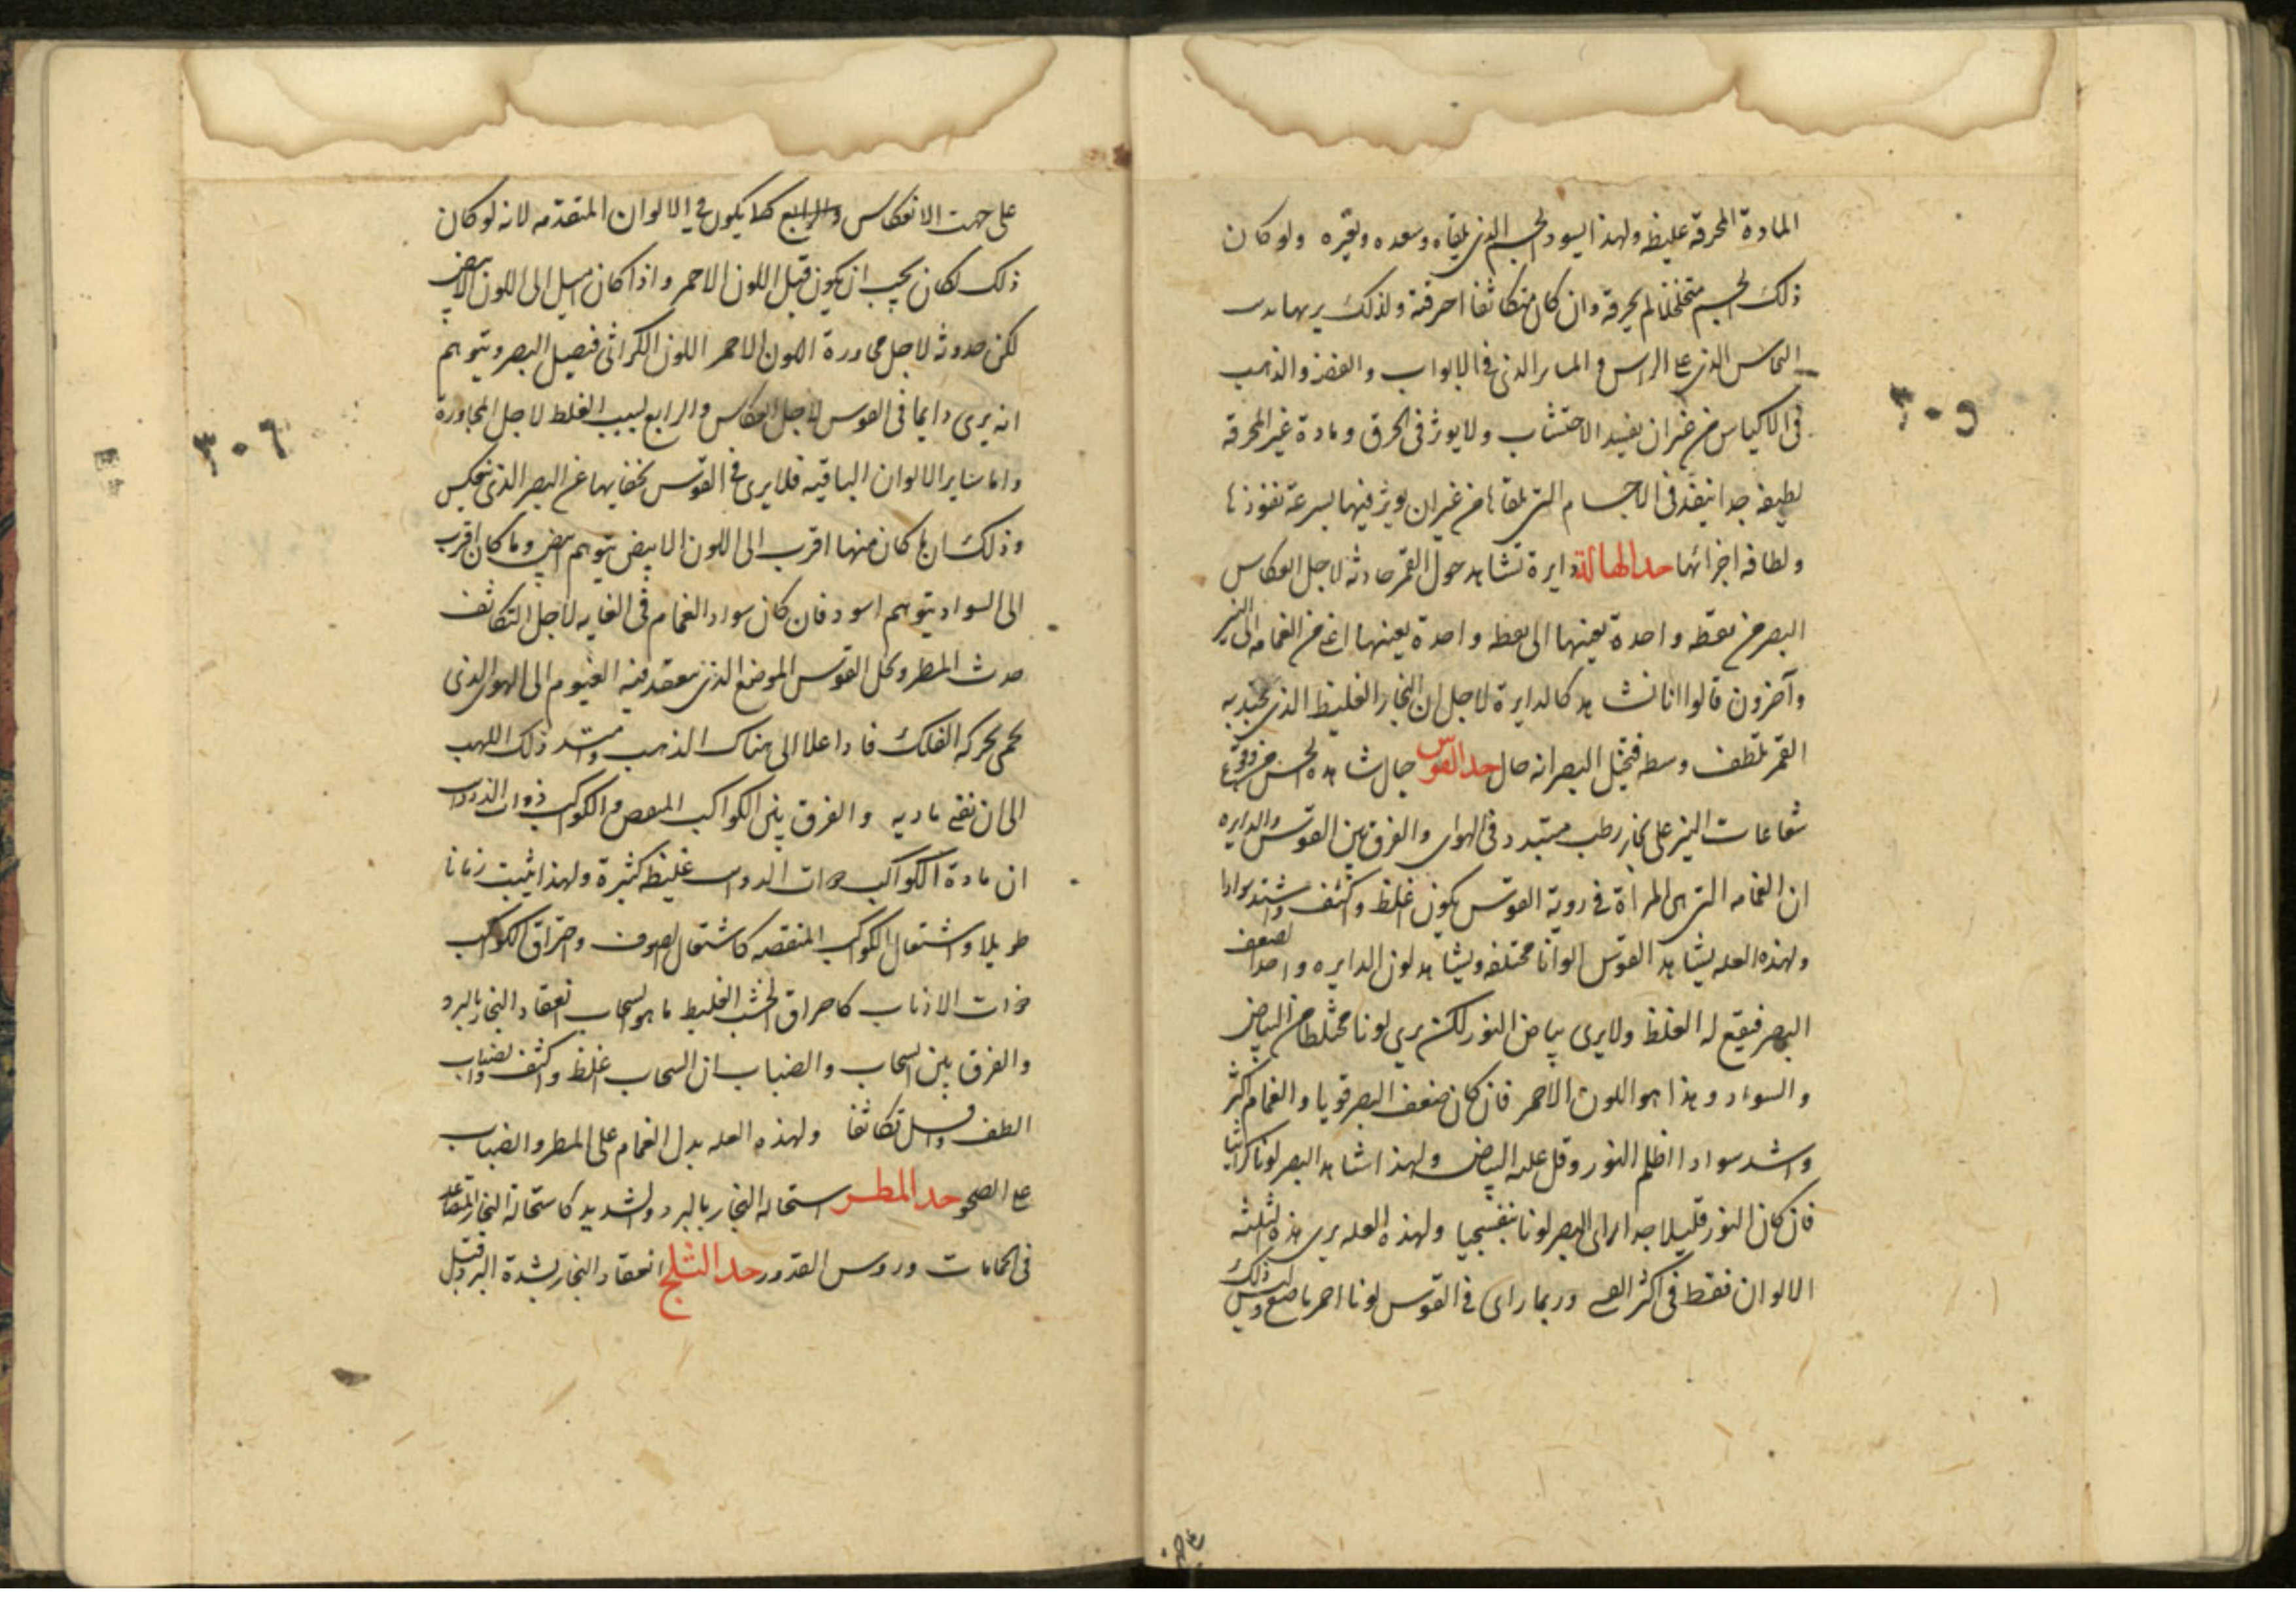 المادة المحرقة غليظه ولهذا يسود الجسم الذي يلقاه ويغيره ولو كان
ذلك الجسم متخلخلا لم يحرقه وان كان متكاثفا احرقته ولذلك
النحاس الذي على الراس و الذي في الابواب والفضه والذهب
في الاكياس من غير ان يفسد الاخشاب ولا يوثر في الخرق ومادة غير المحرقه
لطيفه جدا ينفذ في الاجسام التي يلقاها من غير ان يوثر فيها لسرعة نفوذها
ولطافه اجزائها حد الهالة دايرة تشاهد حول القمر حادثه لاجل انعكاس
البصر من نقطه واحدة بعينها الى نقطه واحدة بعينها اعني من الغمامه الى النير
وآخرون قالوا انا نشاهد كالدايرة لاجل ان البخار الغليظ الذي يجتذبه
القمر يلطف وسطه فيتخيل البصر انه خال حد القوس خيال شاهده الحس من وقوع
شعاعات النير على بخار رطب متبدد في الهواى والفرق بين القوس والدايره
ان الغمامه التي هي المرآة في روية القوس يكون اغلظ واكثف واشد سوادا
ولهذه العله يشاهد القوس الوانا مختلفه ويشاهد لون الدايره واحدا لضعف
البصر فيقع له الغلظ ولا يرى بياض النور لكن يرى لونا مختلطا من البياض
والسواد وهذا هو اللون الاحمر فان كان ضعف البصر قويا والغمام اكثر
واشد سوادا اظلم النور وقل عليه البياض ولهذا شاهد البصر لونا كراثيا
فان كان النور قليلا جدا راى البصر لونا بنفسجيا ولهذه العله يرى هذه الثلثه
الالوان فقط في اكثر القسي وربما راى في القوس لونا احمر ناصع وليس ذلك
٣٠٥
على جهت الانعكاس والرابع كما يكون في الالوان المتقدمه لانه لو كان
ذلك لكان يجب ان يكون قبل اللون الاحمر واذا كان اميل الى اللون الابيض
لكن حدوثه لاجل مجاورة اللون الاحمر اللون الكراثي فيضل البصر ويتوهم
انه يرى دايما في القوس لاجل انعكاس والرابع بسبب الغلط لاجل المجاورة
واما ساير الالوان الباقيه فلا يرى في القوس لخفايها عن البصر الذي ينعكس
وذلك ان ما كان منها اقرب الى اللون الابيض يتوهم ابيض وما كان اقرب
الى السواد يتوهم اسود فان كان سواد الغمام في الغايه لاجل التكاثف
حدث المطر ومحل القوس الموضع الذي ينعقد فيه الغيوم الى الهواء الذي
يحمى بحركه الفلك فاذا علا الى هناك التهب واشتد ذلك اللهب
الى ان تفنى ماديه والفرق بين الكواكب المنقصه والكواكب ذوات
ان مادة الكواكب ذوات غليظه كثيرة ولهذا يثبت زمانا
طويلا واشتعال الكواكب المنقصه كاشتعال الصوف واحراق الكواكب
ذوات الاذناب كاحراق الخشب الغليظ ما هو السحاب انعقاد البخار بالبرد
والفرق بين السحاب والضباب ان السحاب اغلظ واكثف والضباب
الطف واقل تكاثفا ولهذه العله يدل الغمام على المطر والضباب
على الصحو حد المطر استحاله البخار بالبرد الشديد كاستحالة البخار المتصاعد
في الحمامات وروس القدور حد الثلج انعقاد البخار لشدة البرد قبل
٣٠٦